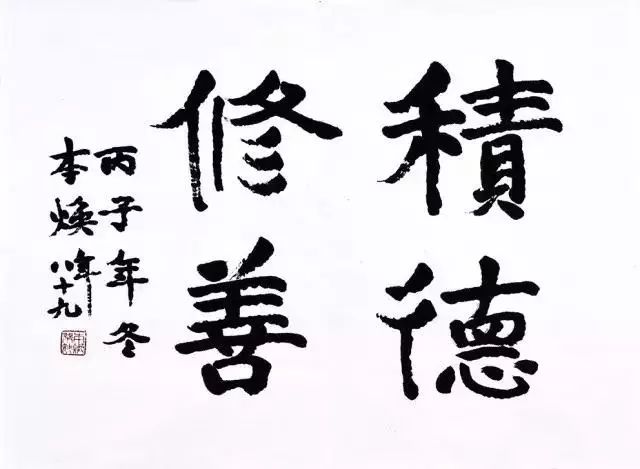 積德
修善
丙子年冬
本焕年八十九